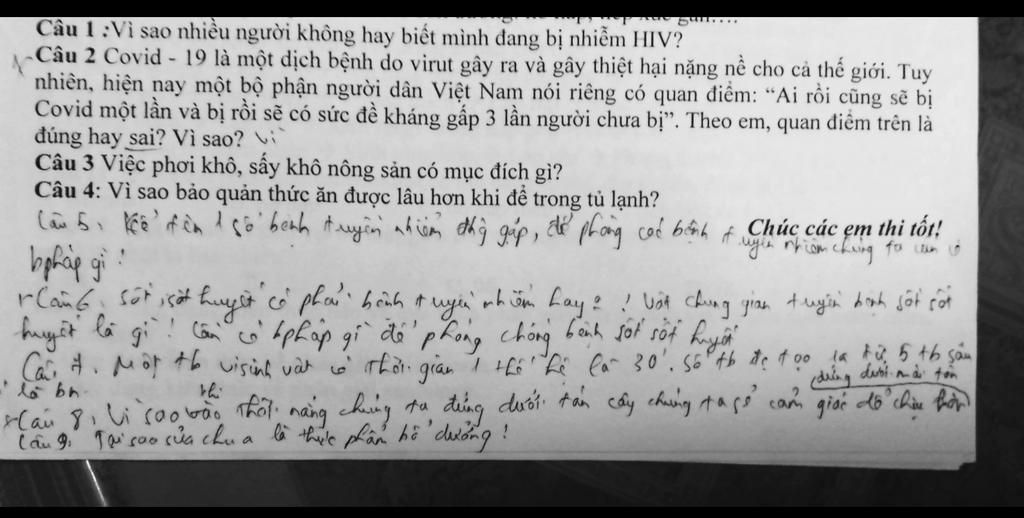 Câu 1 :Vì sao nhiều người không hay biết mình đang bị nhiễm HIV?
Câu 2 Covid - 19 là một dịch bệnh do virut gây ra và gây thiệt hại nặng nề cho cả thế giới. Tuy
nhiên, hiện nay một bộ phận người dân Việt Nam nói riêng có quan điểm: “Ai rồi cũng sẽ bị
Covid một lần và bị rồi sẽ có sức đề kháng gấp 3 lần người chưa bị”. Theo em, quan điểm trên là
đúng hay sai? Vì sao? Vì
Câu 3 Việc phơi khô, sấy khô nông sản có mục đích gì?
Câu 4: Vì sao bảo quản thức ăn được lâu hơn khi để trong tủ lạnh?
Câu 5, Kể tên 1 số bệnh truyền nhiễm thg gặp, để phòng các bệnh truyền nhiễm chúng ta cần có
Chúc các em thi tốt!
bpháp gì !
Câu 6, sốt sốt huyết có phải bệnh truyền nhiễm hay ! Vật chung gian truyền bệnh sốt sốt
huyết là gì ! Cần có bpháp gì để phòng chống bệnh sốt sốt huyết
Câu 7, Một tb visinh vật có thời gian 1 thế hệ là 30'. Số tb đc tạo ra từ 5 tb sau
là bn
Câu 8, Vì sao vào thời nắng chúng ta đứng dưới tán cây chúng ta sẽ cảm giác dễ chịu hơn
đứng dưới mái tôn
Câu 9, Tại sao sữa chua là thực phẩm bổ dưỡng !